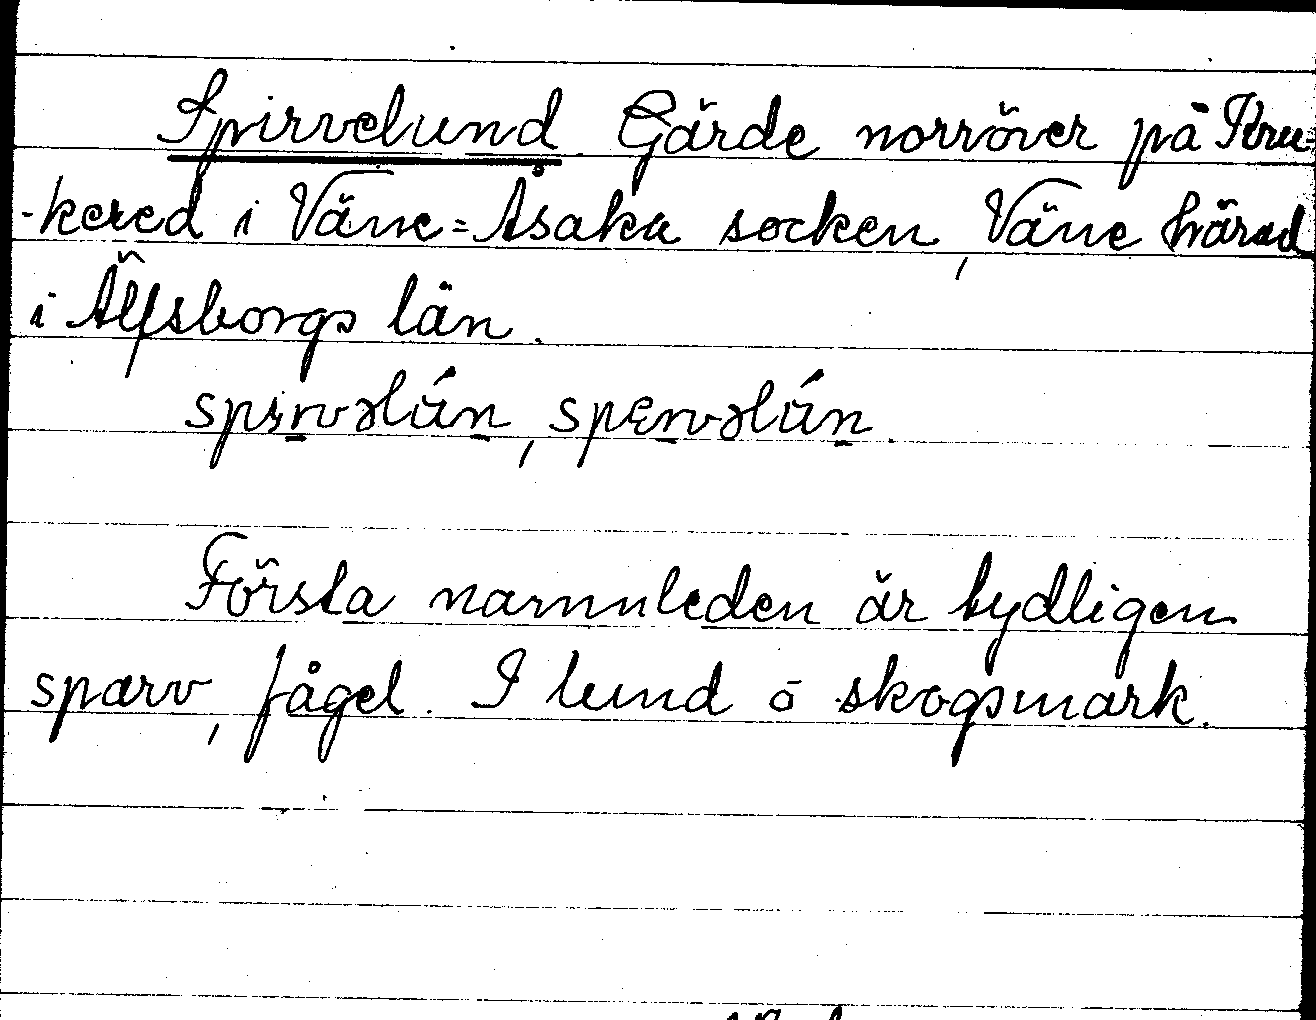 Spirvelund Gärde norröver på Kru=
-kered i Väne=Åsaka socken, Väne härad
i Älfsborgs län.
spɪrvəlún, spɛrvəlún.
Första namnleden är tydligen
sparv, fågel. I lund o skogsmark.